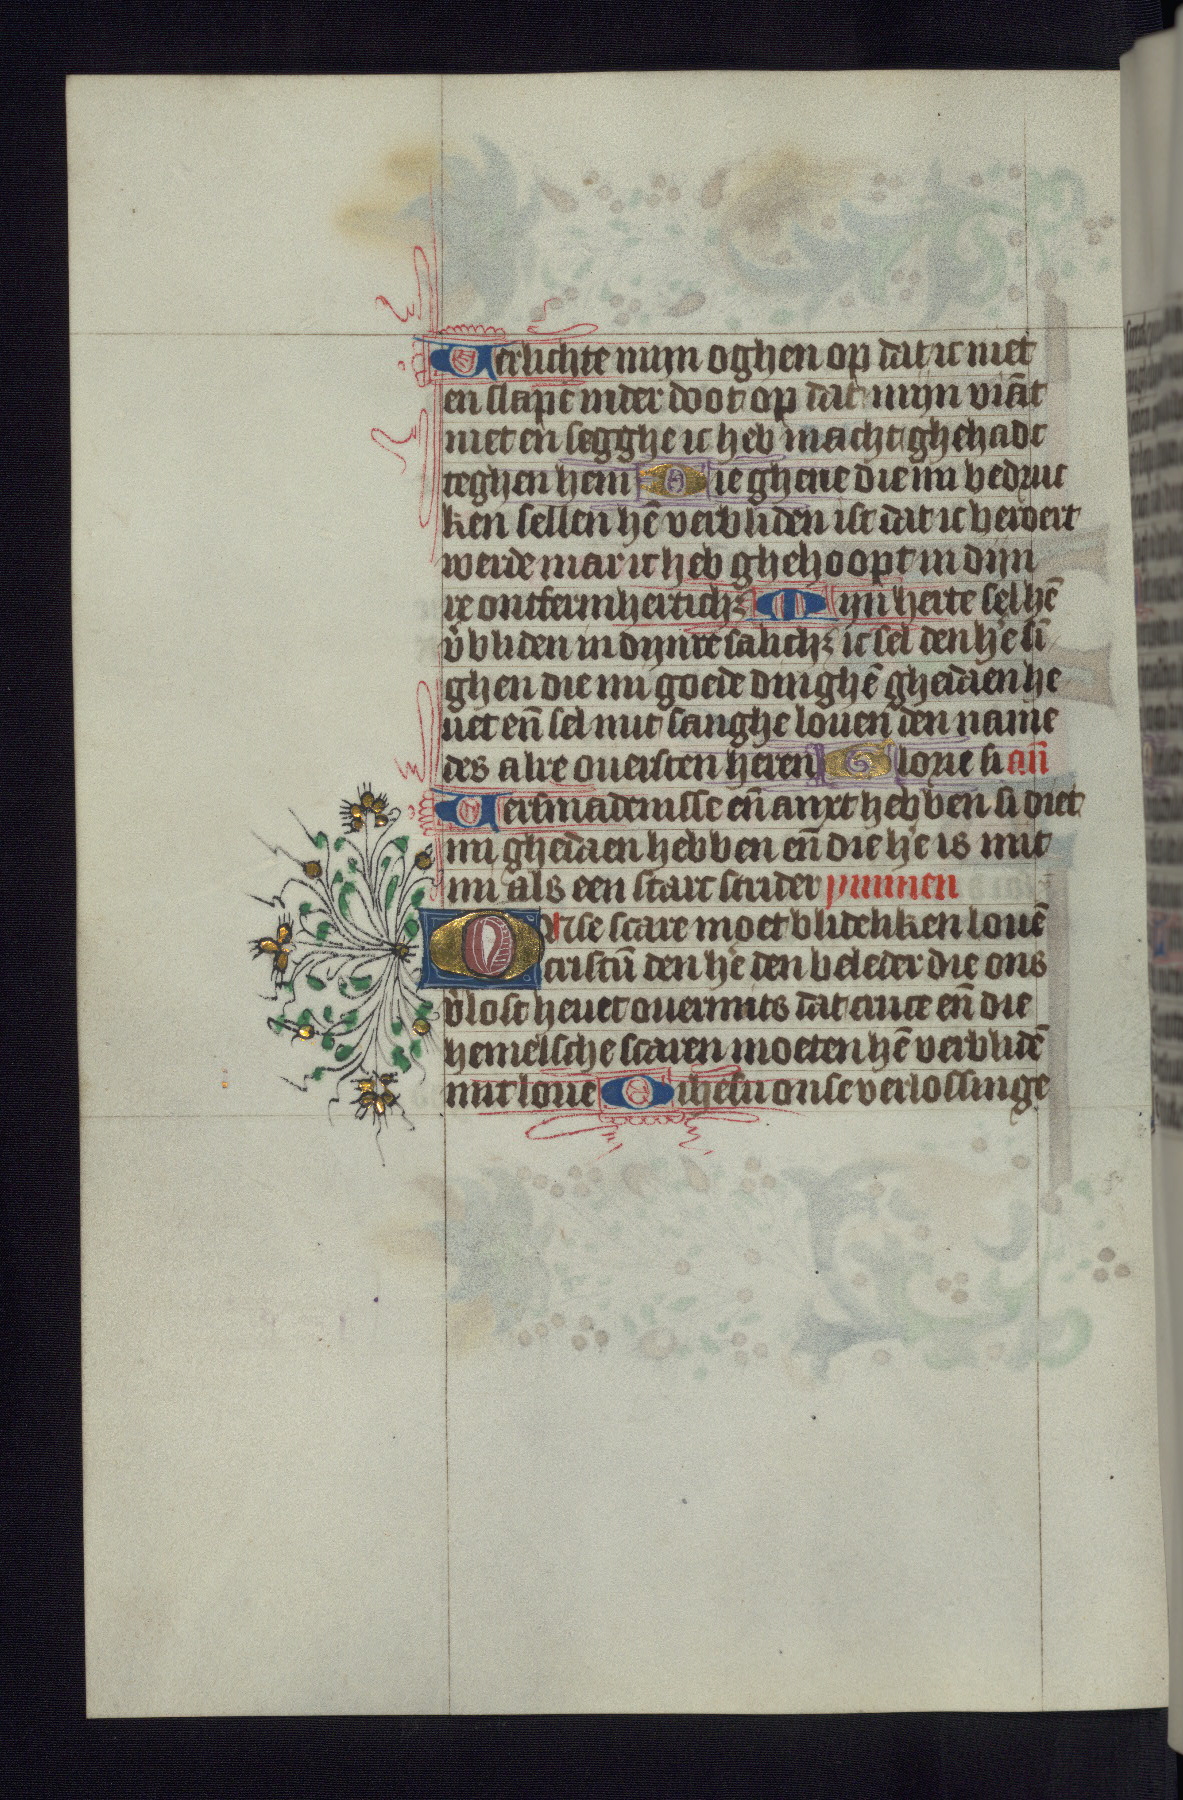 Verlichte mijn oghen op dat ic niet
en slape inder doot op dat mijn viāt
niet en segghe ic heb macht ghehadt
teghen hem Die ghene die mi bedruc
ken sellen hē verbliden ist dat ic beroert
werde mar ic heb ghehoopt in dijn
re ontfermhertichꝫ Mijn herte sel hē
v̄bliden in dijnre salichꝫ ic sel den hē si
ghen die mi goede dinghē ghedaen he
uet en̄ sel mit sanghe louen den name
des alre ouersten heren Glorie si an̄
Versmadenisse en̄ anxt hebben si diet
mi ghedaen hebben en̄ die hē is mit
mi als een starc strider ymmen
Onse scare moet blidelikē louē
cristū den hē den beleder die ons
v̄lost heuet ouermits dat cruce en̄ die
hemelsche scaren moeten hē verblidē
mit loue O ihesu onse verlossinge